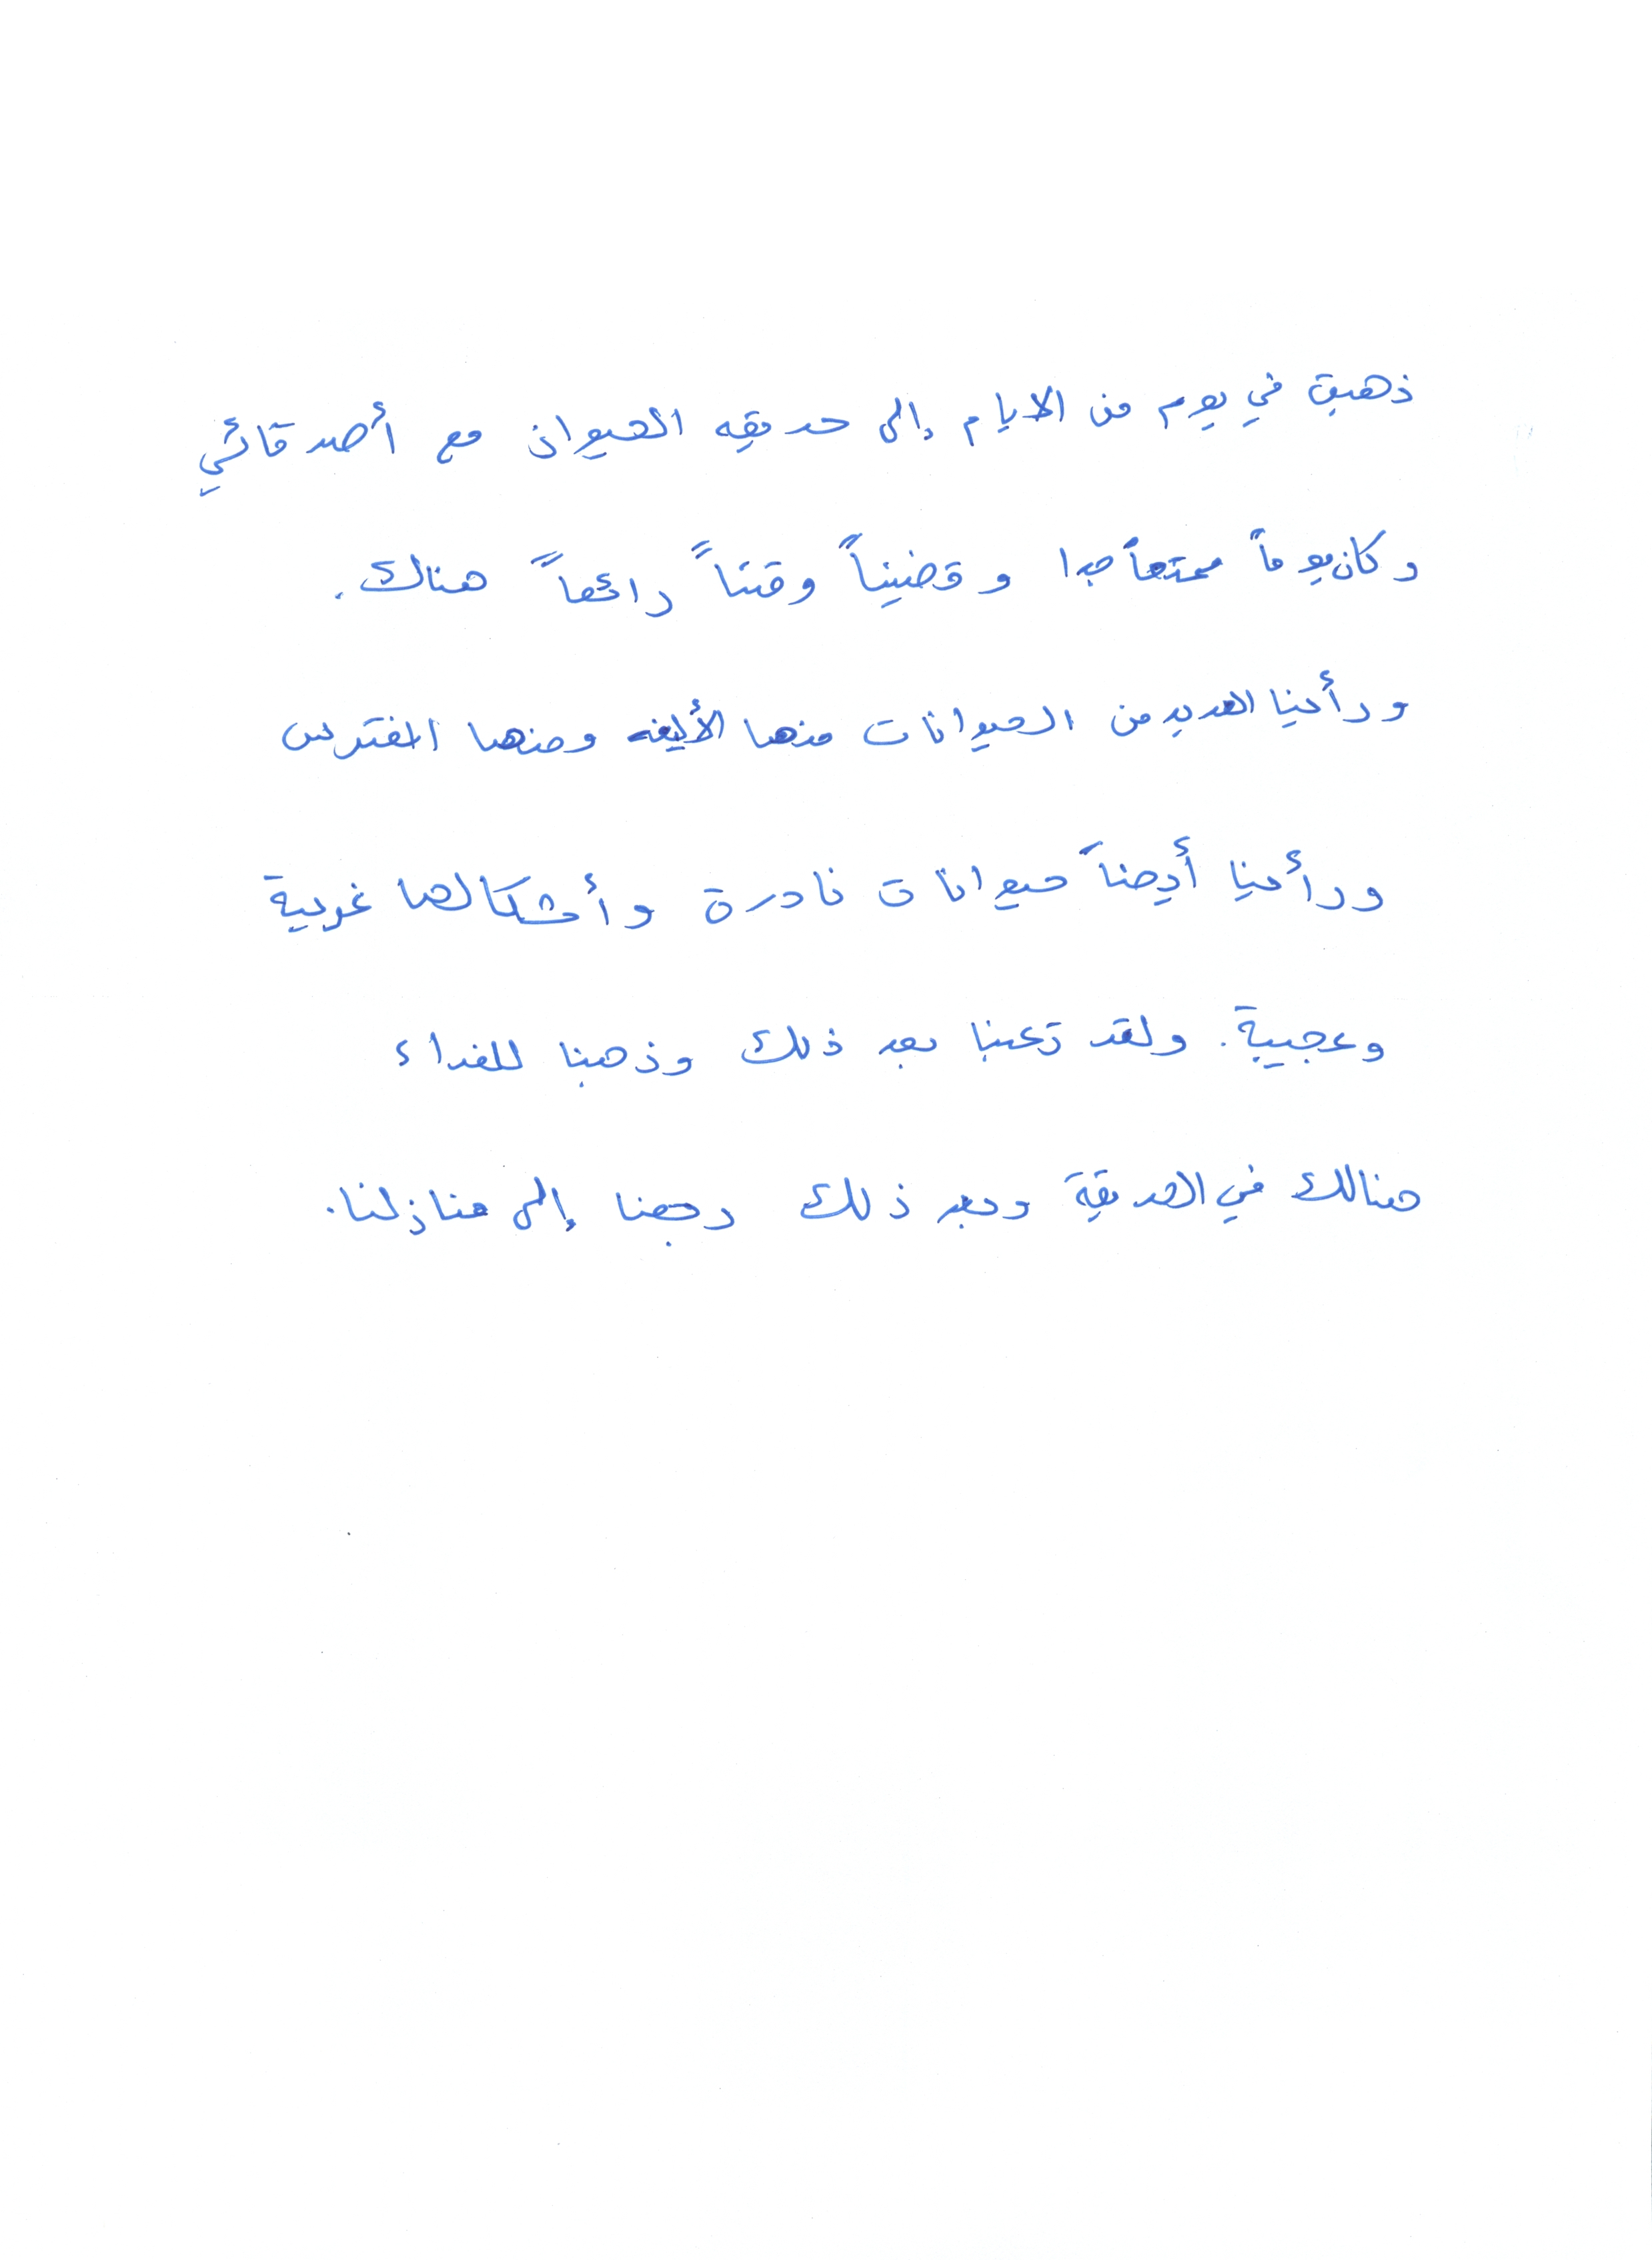 ذهبت في يوم من الايام إلى حديقه الحيوان مع أصدقائي
وكان يوماً ممتعاً جدا وقضيناً وقتاً رائعاً هناك.
ورأينا العديد من الحيوانات منها الأليفه ومنها المفترس
ورأينا أيضاً حيوانات نادرة وأشكالها غريبة
وعجيبة. ولقد تعبنا بعد ذلك وذهبنا للغداء
هنالك في الحديقة وبعد ذلك رجعنا إلى منازلنا.